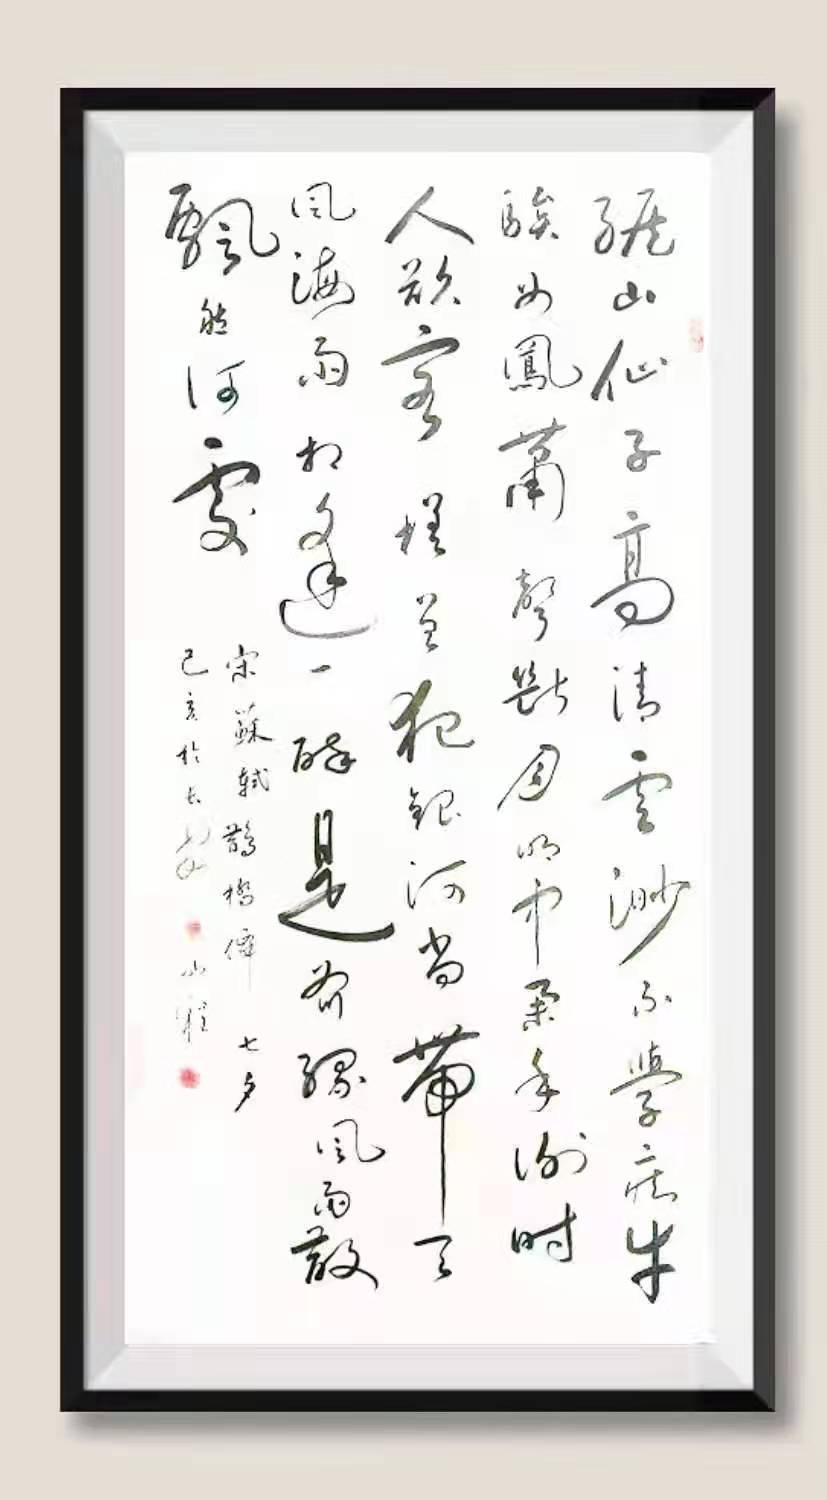 緱山仙子高清雲渺不學痴牛
騃女鳳蕭聲斷月明中舉手謝时
人欲客槎曾犯銀河尚帶天
風海雨相逢一醉是前緣風雨散
飄然何處
宋蘇軾鵲橋僊 七夕
己亥於长